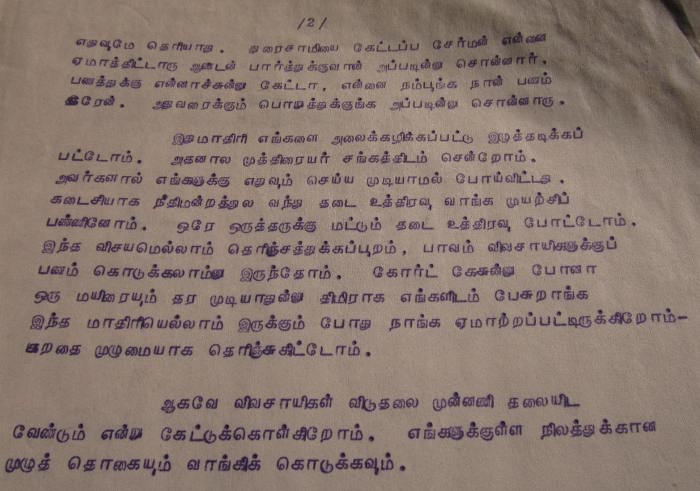 /2/
எதுவுமே தெரியாது. துரைசாமியை கேட்டப்ப சேர்மன் என்னை
ஏமாத்திட்டாரு ஆண்டவன் பார்த்துக்குவான் அப்படின்னு சொன்னார்.
பணத்துக்கு என்னாச்சுன்னு கேட்டா, என்னை நம்பூங்க நான் பணம்
தரேன். அதுவரைக்கும் பொறுத்துக்குங்க அப்படின்னு சொன்னாரு.
இதுமாதிரி எங்களை அலைக்கழிக்கப்பட்டு இழுத்தடிக்கப்
பட்டோம். அதனால முத்திரையர் சங்கத்திடம் சென்றோம்.
அவர்களால் எங்களுக்கு எதுவும் செய்ய முடியாமல் போய்விட்டது.
கடைசியாக நீதிமன்றத்துல வந்து தடை உத்திரவு வாங்க முயற்சிப்
பண்ணினோம். ஒரே ஒருத்தருக்கு மட்டும் தடை உத்திரவு போட்டோம்.
இந்த விசயமெல்லாம் தெரிஞ்சத்துக்கப்புறம், பாவம் விவசாயிகளுக்குப்
பணம் கொடுக்கலாம்னு இருந்தோம். கோர்ட் கேசுன்னு போனா
ஒரு மயிரையும் தர முடியாதுன்னு திமிராக எங்களிடம் பேசுறாங்க
இந்த மாதிரியெல்லாம் இருக்கும் போது நாங்க ஏமாற்றப்பட்டிருக்கிறோம்-
ங்றதை முழுமையாக தெரிஞ்சுகிட்டோம்.
ஆகவே விவசாயிகள் விடுதலை முன்னணி தலையிட
வேண்டும் என்று கேட்டுக்கொள்கிறோம். எங்களுக்குள்ள நிலத்துக்கான
முழுத் தொகையும் வாங்கிக் கொடுக்கவும்.